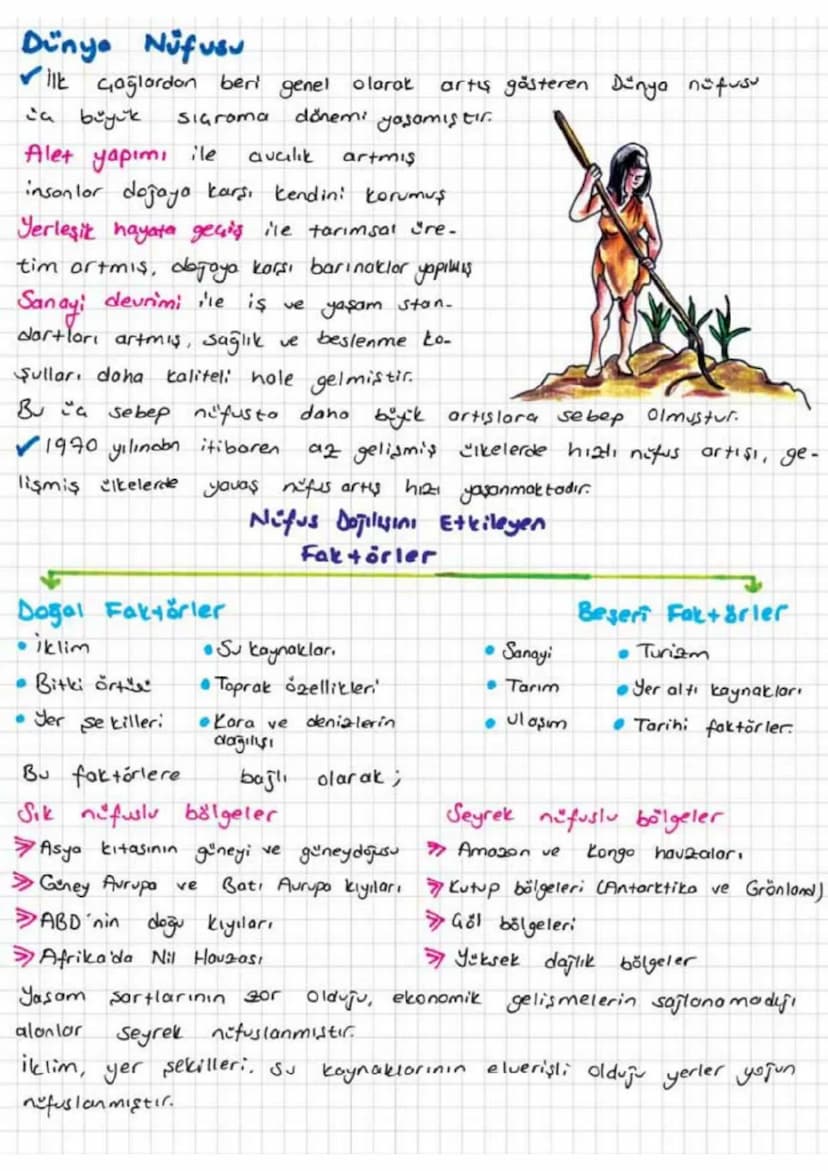 Dünya Nüfusu
✓ İlk çağlardan beri genel olarak artış gösteren Dünya nüfusu
üç büyük sıçrama dönemi yaşamıştır.
Alet yapımı ile avcılık artmış
insanlar doğaya karşı kendini korumuş
Yerleşik hayata geçiş ile tarımsal üre-
tim artmış, doğaya karşı barınaklar yapılmış
Sanayi devrimi ile iş ve yaşam stan-
dartları artmış, sağlık ve beslenme ko-
şulları daha kaliteli hale gelmiştir.
Bu üç sebep nüfusta daha büyük artışlara sebep olmuştur.
✓ 1970 yılından itibaren az gelişmiş ülkelerde hızlı nüfus artışı, ge-
lişmiş ülkelerde yavaş nüfus artış hızı yaşanmaktadır.
Nüfus Dağılışını Etkileyen
Faktörler
Doğal Faktörler
• İklim
• Su kaynakları
• Bitki örtüsü
• Toprak özellikleri
• Yer şekilleri
• Kara ve denizlerin
dağılışı
Beşeri Faktörler
• Sanayi
• Turizm
• Tarım
• Yer altı kaynakları
• Ulaşım
• Tarihi faktörler.
Bu faktörlere bağlı olarak;
Sık nüfuslu bölgeler
Asya kıtasının güneyi ve güneydoğusu
Güney Avrupa ve Batı Avrupa kıyıları
ABD'nin doğu kıyıları
Afrika'da Nil Havzası
Seyrek nüfuslu bölgeler
Amazon ve Kongo havzaları
Kutup bölgeleri (Antarktika ve Grönland)
Göl bölgeleri
Yüksek dağlık bölgeler
Yaşam şartlarının zor olduğu, ekonomik gelişmelerin sağlanamadığı
alanlar seyrek nüfuslanmıştır.
İklim, yer şekilleri, su kaynaklarının elverişli olduğu yerler yoğun
nüfuslanmıştır.